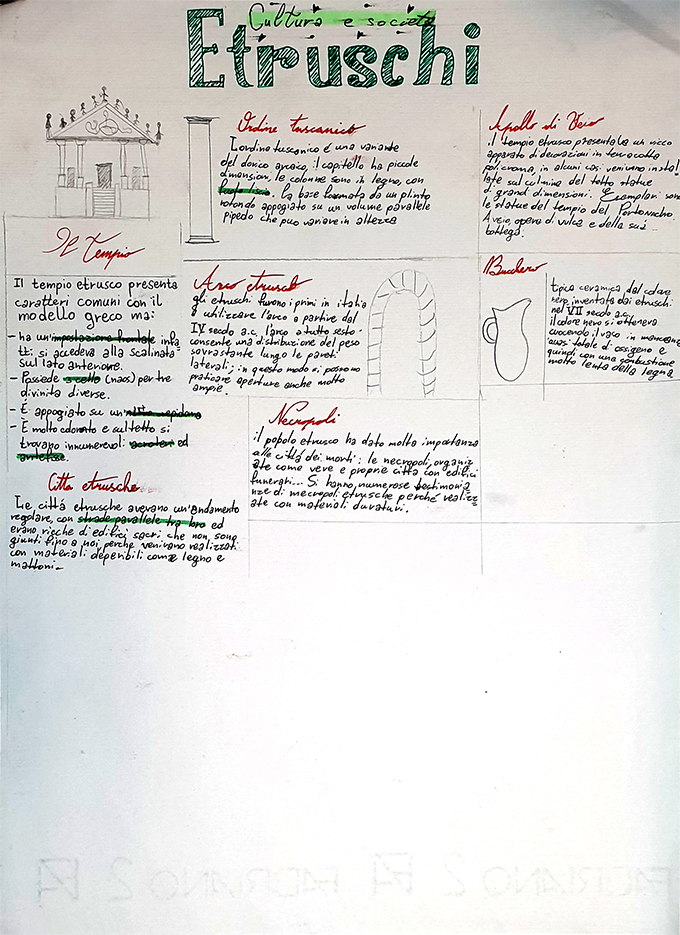 Cultura e società
Etruschi
Ordine tuscanico
L'ordine tuscanico é una variante
del dorico arcaico, il capitello ha piccole
dimensioni, le colonne sono in legno, con
fusto liscio. la base formata da un plinto
rotondo appogiato su un volume parallele
pipedo che puo variare in altezza
Apollo di Veio
il tempio etrusco presentava un ricco
apparato di decorazioni in terracotta
policroma, in alcuni casi venivano instal
late sul culmine del tetto statue
di grandi dimensioni. Esemplari sono
le statue del tempio del Portonaccio
A veio, opera di vulca e della sua
bottega.
Il Tempio
Il tempio etrusco presenta
caratteri comuni con il
modello greco ma:
- ha un'impostazione frontale infa
tti si accedeva alla scalinata
sul lato anteriore.
- Possiede 3 celle (naos) per tre
divinita diverse.
- É appogiato su un'alto
- É molto colorato e sul tetto si
trovano innumerevoli acroteri ed
antefisse.
Arco etrusco
gli etruschi furono i primi in italia
a utilizzare l'arco a partire dal
IV secolo a.c. l'arco a tutto sesto
consente una distribuzione del peso
sovrastante lungo le pareti
laterali; in questo modo si possono
praticare aperture anche molto
ampie.
Bucchero
tipica ceramica dal colore
nero, inventata dai etruschi
nel VII secolo a.c.
il colore nero si otteneva
cuocendo il vaso in mancanza
quasi totale di ossigeno e
quindi con una combustione
molto lenta della legna
Necropoli
il popolo etrusco ha dato molta importanza
alle cittá dei morti: le necropoli, organiz
ate come vere e proprie citta con edifici
funerari... Si hanno, numerose testimonia
nze di necropoli etrusche perché realizz
ate con materiali duraturi.
Citta etrusche
Le cittá etrusche avevano un'andamento
regolare, con strade parallele tra loro ed
erano ricche di edifici sacri che non, sono
giunti fino a noi perche venivano realizzati
con materiali deperibili come legno e
mattoni-
FABRIANO 2 F4 FABRIANO 2 F4